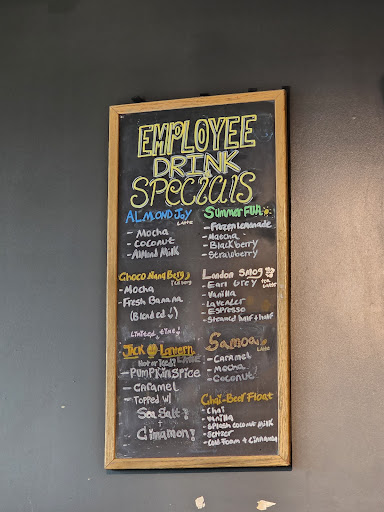 EMPLOYEE
DRINK
SPECIALS
ALMOND JOY
Latte
- Mocha
- Coconut
- Almond Milk
Choco Nana Berg
- Mocha
- Fresh Banana
(Blended!)
Limited time!
Jack O Lantern
Hot or Iced! Latte
- Pumpkin Spice
- Caramel
- Topped w/
Sea Salt!
+
Cinnamon!
Summer FUN
- Frozen Lemonade
- Matcha
- Blackberry
- Strawberry
London Smog
Tea Latte
- Earl Grey
- Vanilla
- Lavender
- Espresso
- Steamed half + half
Samoa
Latte
- Caramel
- Mocha
- Coconut!
Chai-Beer Float
- Chai
- Vanilla
- Splash Coconut Milk
- Seltzer
- Cold Foam + Cinnamon